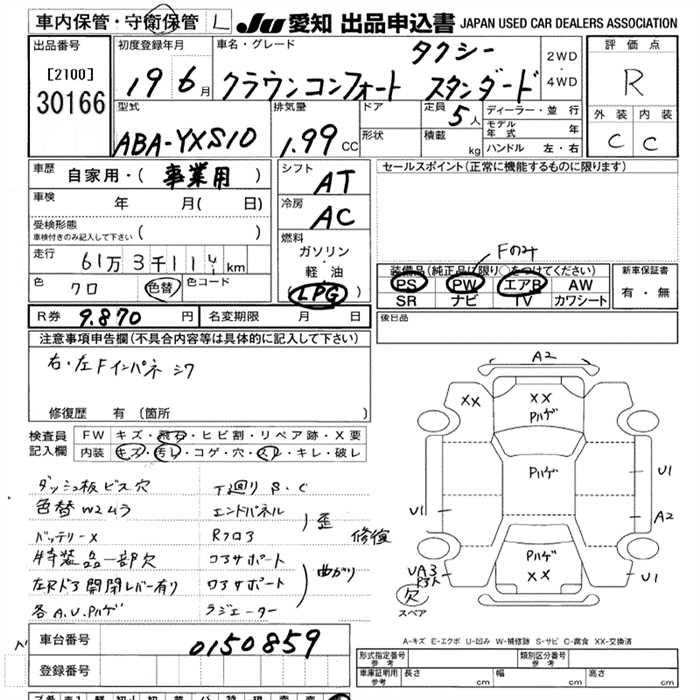 車内保管・守衛保管 L JU 愛知 出品申込書 JAPAN USED CAR DEALERS ASSOCIATION
出品番号 初度登録年月 車名・グレード タクシー 2WD 評価点
[2100] 19 6月 クラウンコンフォート スタンダード 4WD R
30166 型式 排気量 ドア 定員 5人 ディーラー・並行 外装 内装
ABA-YXS10 1.99 CC 形状 積載 kg モデル年式 年 C C
ハンドル 左・右
車歴 自家用・(事業用) シフト AT セールスポイント(正常に機能するものに限ります)
車検 年 月( 日) 冷房 AC
受検形態
車検付きのみ記入して下さい ( )
燃料
走行 61万3千11 km ガソリン・軽油 Fのみ
LPG 装備品(純正品に限り○をつけてください) 新車保証書
色 クロ 色替 色コード PS PW エアB AW 有・無
SR ナビ TV カワシート
R券 9.870 円 名変期限 月 日 後日品
注意事項申告欄(不具合内容等は具体的に記入して下さい)
右・左Fインパネ シワ
修復歴 有(箇所 )
検査員記入欄 FW キズ・飛石・ヒビ割・リペア跡・X要
内装 キズ・汚レ・コゲ・穴・スレ・キレ・破レ
ダッシュ板ビス穴 下廻り S.C
色替W2ムラ エンドパネル
バッテリーX Rフロア 歪 修復
特装品一部欠 コアサポート
左Rドア開閉レバー有り ロアサポート 曲がり
各A.U.Pハゲ ラジエーター
A2
XX
XX
Pハゲ
Pハゲ
U1
U1
A2
Pハゲ
XX
UA3
U1
欠
スペア
車台番号 0150859
登録番号
A-キズ E-エクボ U-凹み W-補修跡 S-サビ C-腐食 XX-交換済
形式指定番号 参考 類別区分番号 参考
車庫証明用 参考 長さ cm 幅 cm 高さ cm